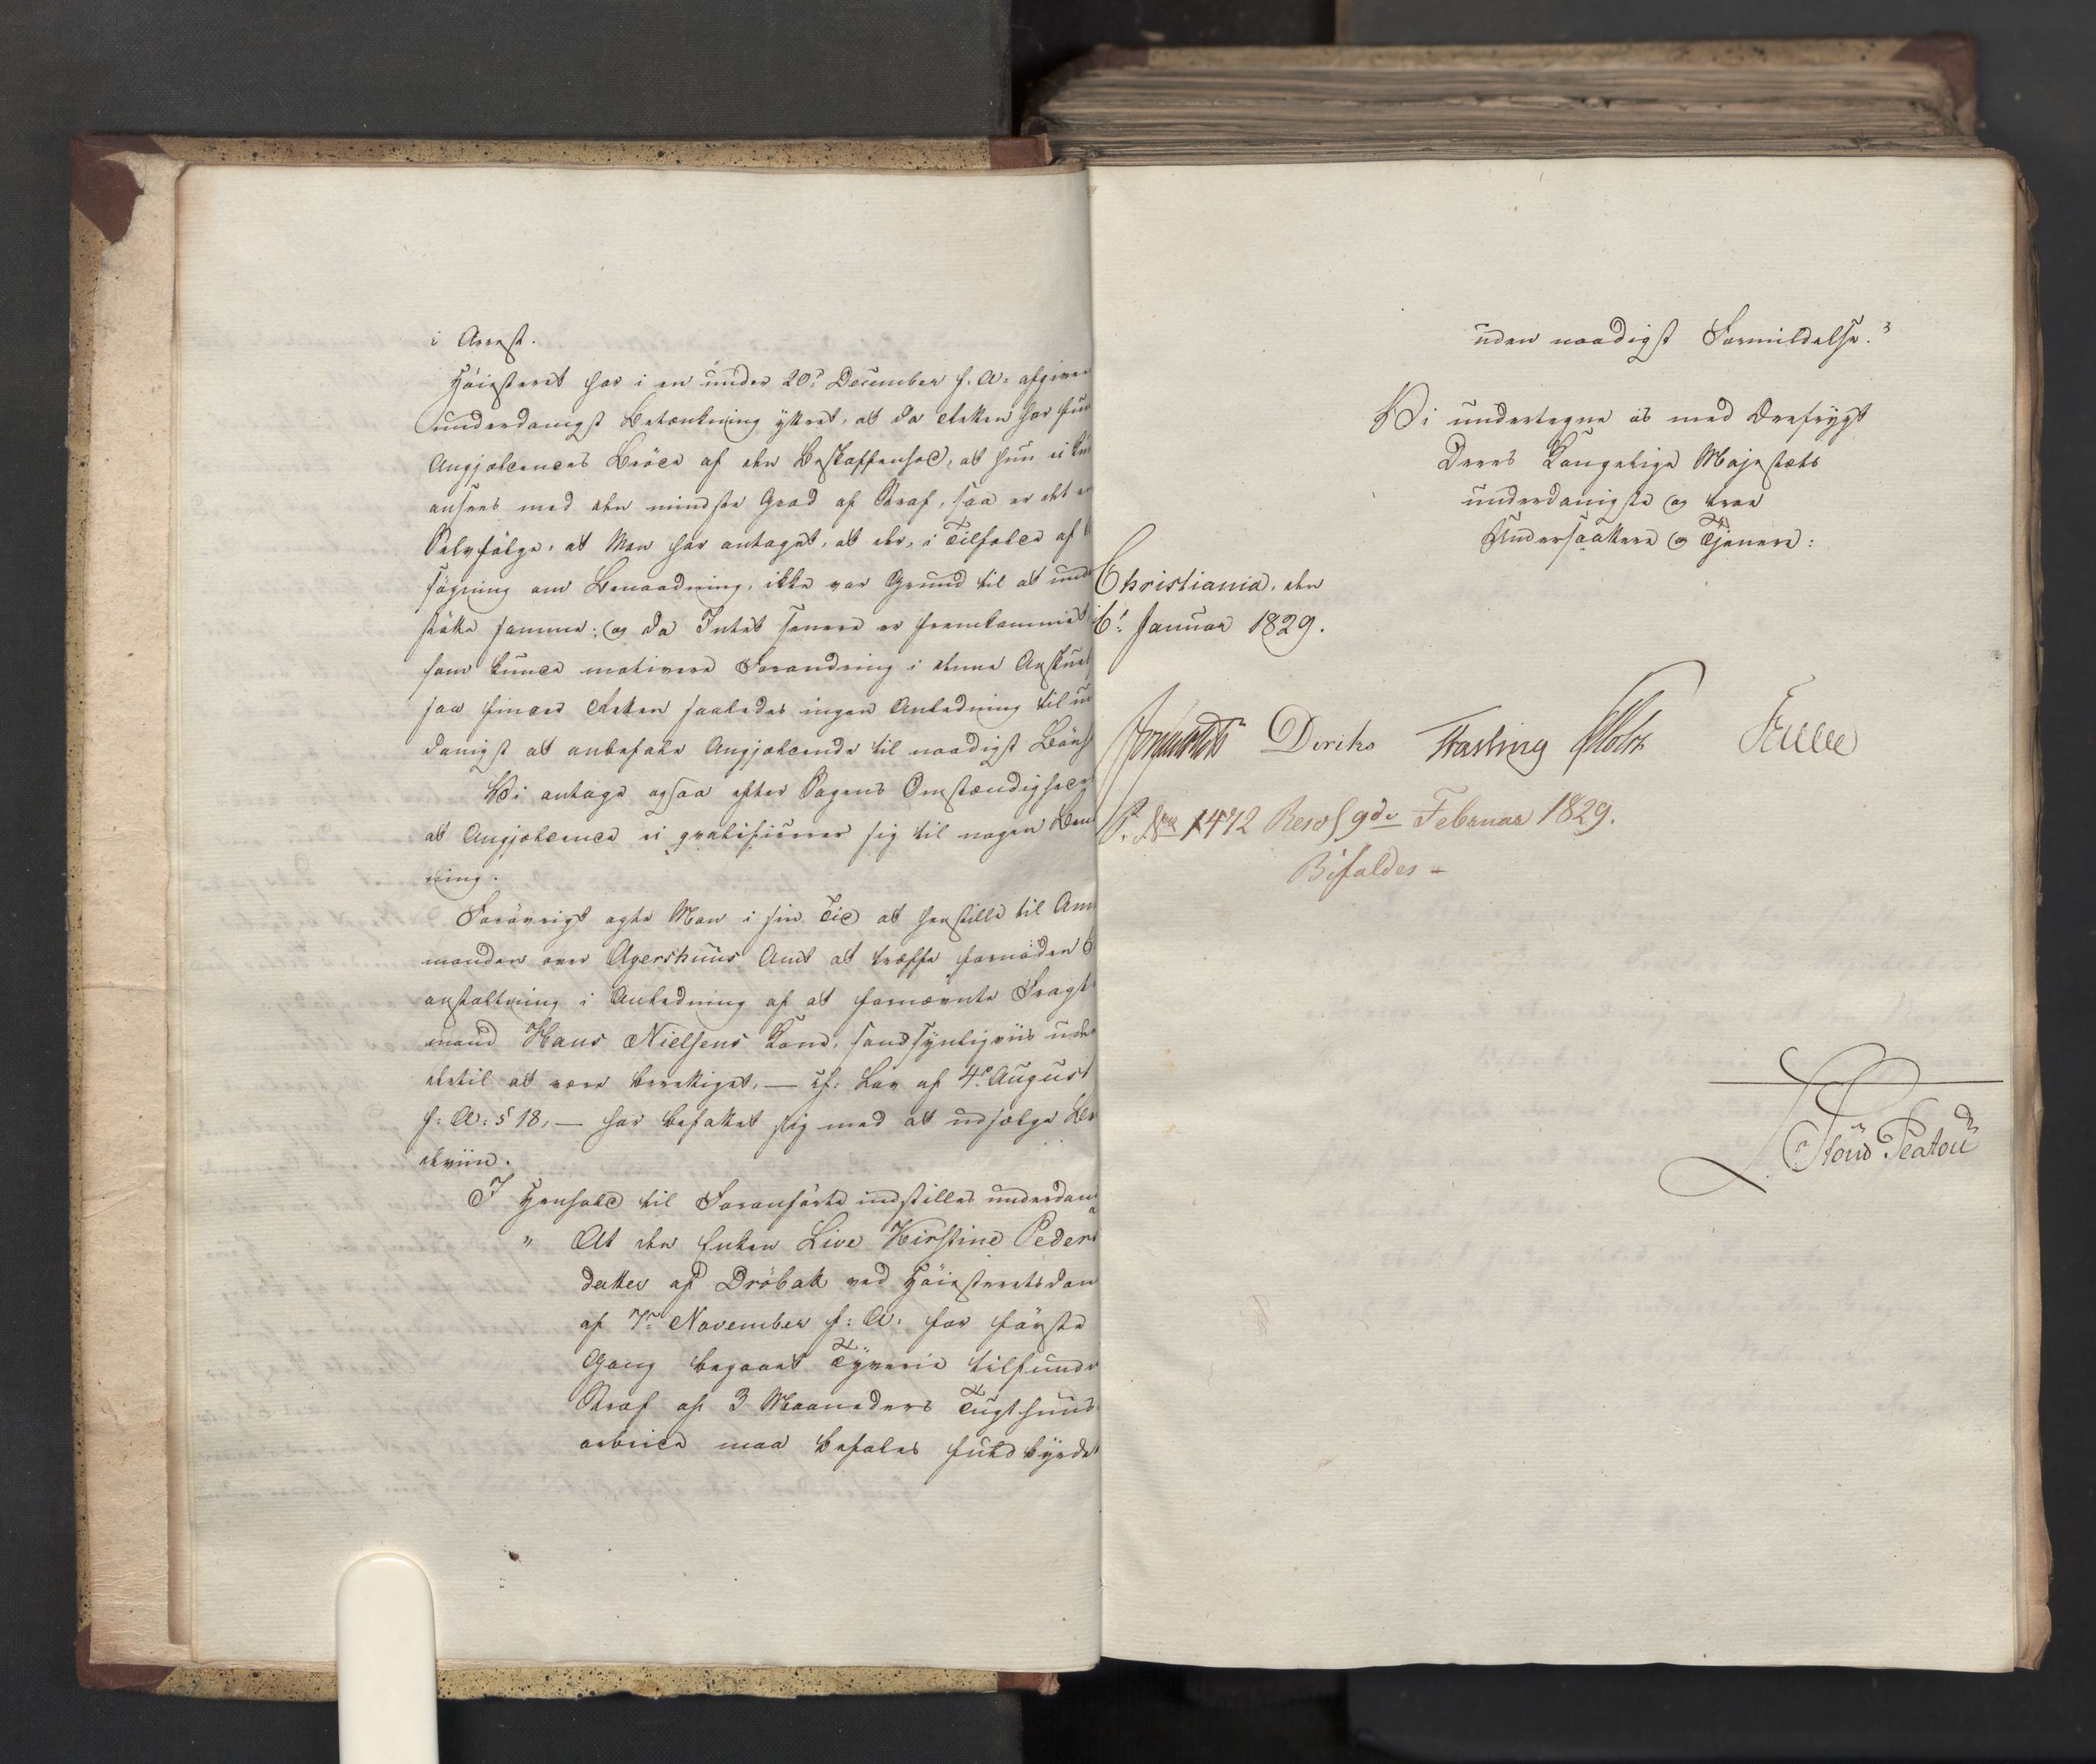 i Arrest.
Høiesteret har i en under 20de December f: A: afgiven
underdanigst Betænkning yttret, at da Retten har fun
Angjældendes Brøde af den Beskaffenhed, at hun ei kun
ansees med den mindste Grad af Straf, saa er det en
Selvfølge, at Man har antaget, at der, i Tilfælde af
søgning om Benaadning, ikke var Grund til at under
støtte samme; og da Intet senere er fremkommet,
som kunde motivere Forandring i denne Anskuel
saa finder Retten saaledes ingen Anledning til un
danigst at anbefale Angjældende til naadigst Bønh
Vi antage ogsaa efter Sagens Omstændighed
at Angjældende ei qvalificerer sig til nogen Ben
ning.
Forøvrigt agte Man i sin Tid at henstille til Amt
manden over Agershuus Amt at træffe fornøden
anstaltning i Anledning af at fornævnte Fragt-
mand Hans Nielsens Kone, sandsynligviis uden
dertil at være berettiget, — cf: Lov af 4de August
f: A: § 18, — har befattet sig med at udsælge Bræ
deviin.
I Henhold til Foranførte indstilles underdan
" At den Enken Live Kirstine Peders
datter af Drøbak ved Høiesteretsdom
af 7de November f: A: for første
Gang begaaet Tyverie tilfundn
Straf af 3 Maaneders Tugthuus-
arbeide maa befales fuldbyrdet
uden naadigst Formildelse."
Vi undertegne os med Ærefrygt
Deres Kongelige Majestæts
underdanigste og troe
Undersaattere og Tjenere:
Christiania, den
6te Januar 1829.
Diriks Fasting Holst
P. No 1472 Resol 9de Februar 1829.
Bifaldes -